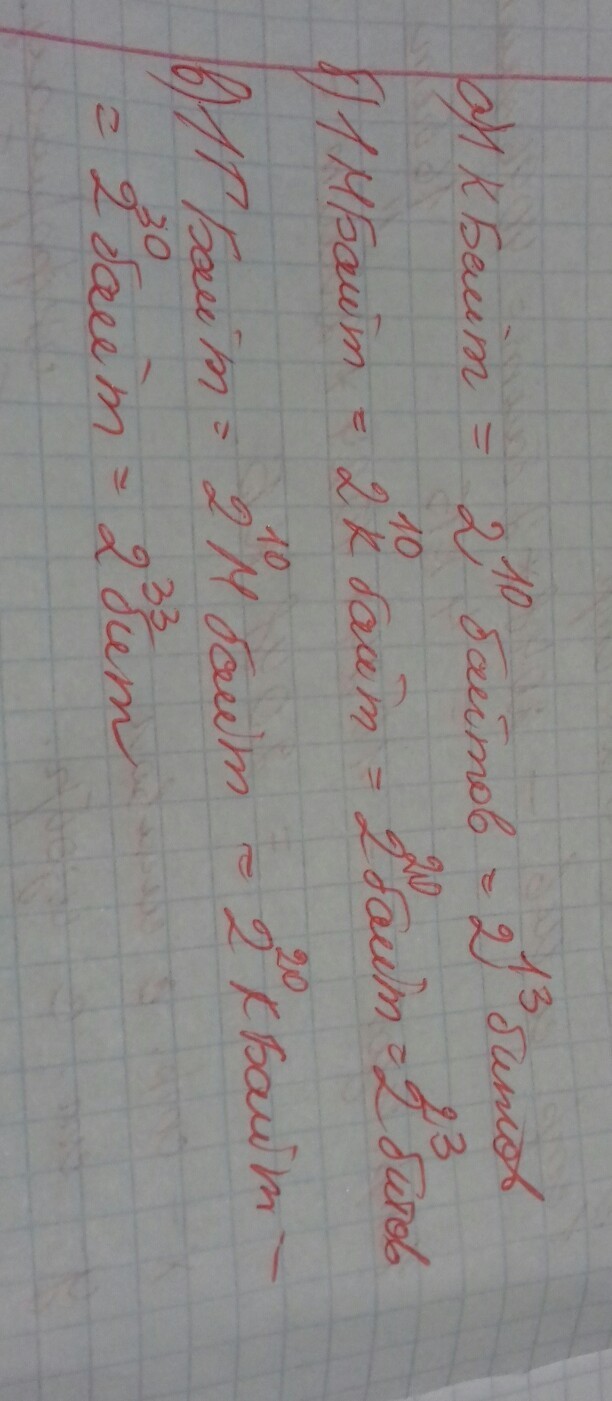 а) 1 КБайт = 2^10 байтов = 2^13 битов
б) 1 МБайт = 2^10 Кбайт = 2^20 байт = 2^23 битов
в) 1 ГБайт = 2^10 Мбайт = 2^20 КБайт =
= 2^30 байт = 2^33 бит